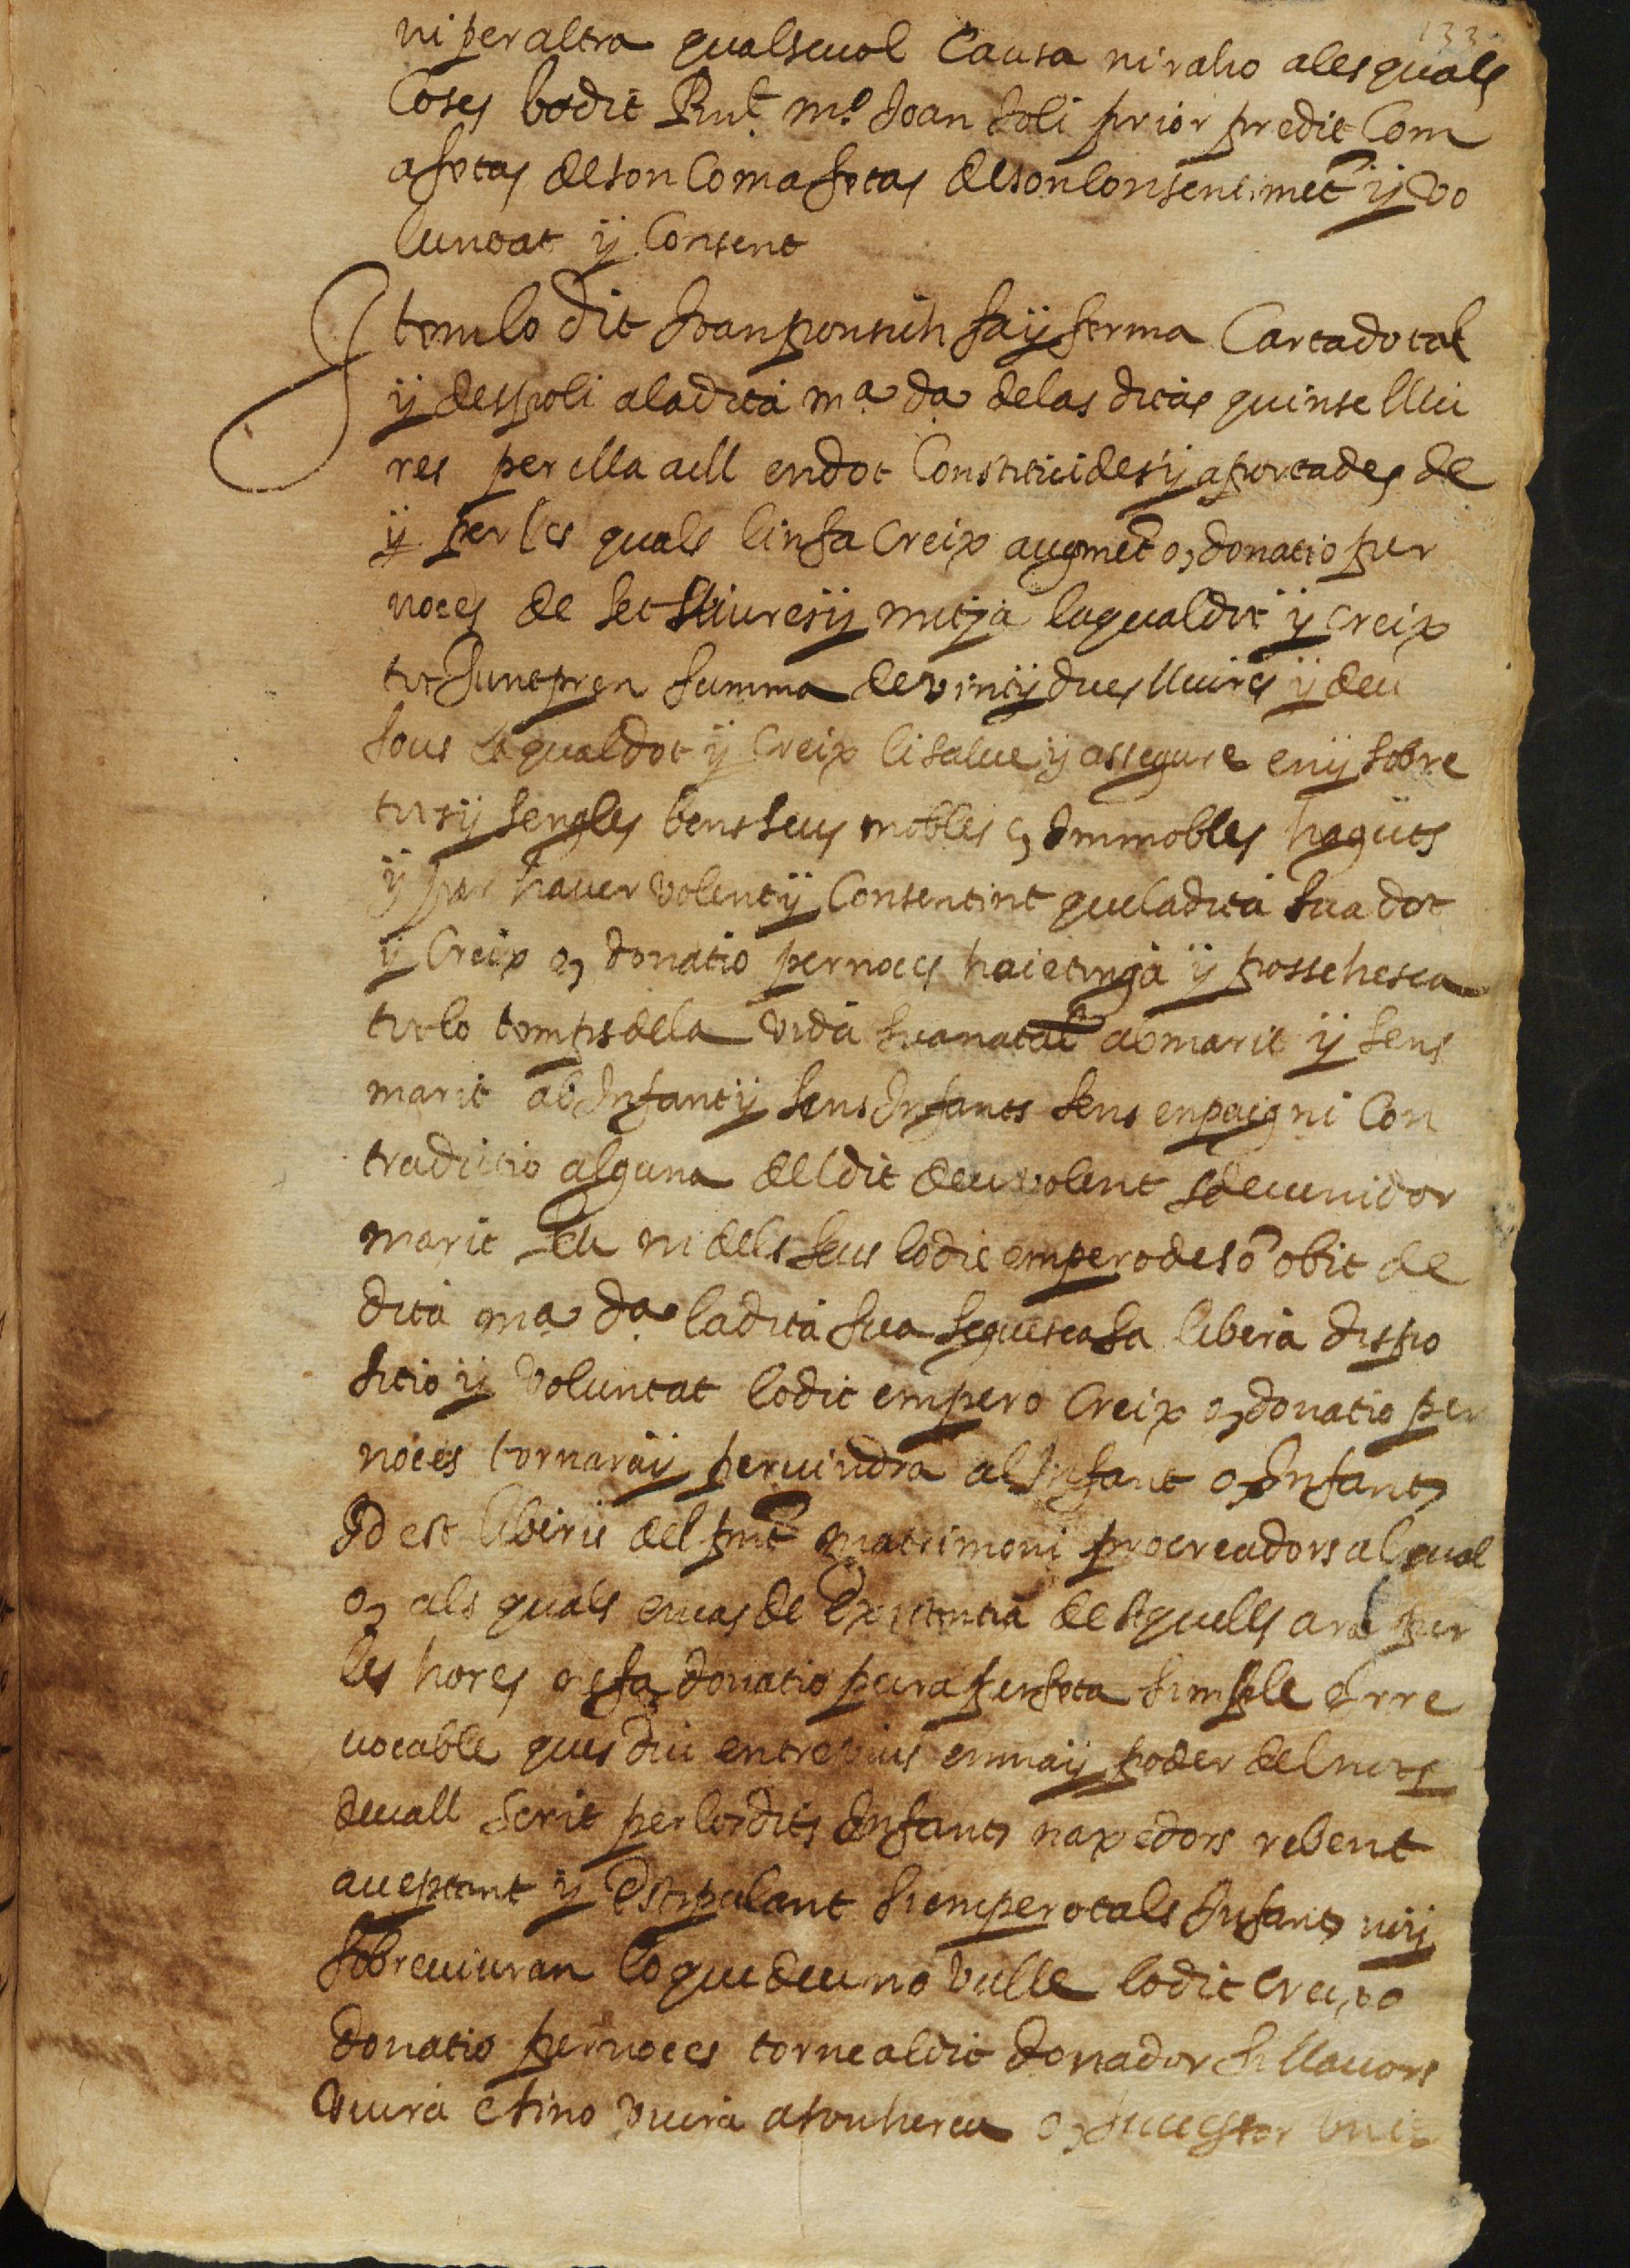 133
ni per altra qualsevol Causa ni raho a les quals
Coses lo dit Rnt. mo. Joan Soli prior predit Com
a fetas de son Com a fetas de son Consentimet y vo
luntat y Consent
Item lo dit Joan ponsich fa y ferma Carta dotal
y despoli a la dita ma. da. de las ditas quinse lliu
res per ella a ell en dot Constituides y aportades de
y per les quals li n fa Creix augmet o, donatio per
noces de set lliures y mitja la qual dot y creix
tot Junt pren summa de vint y dues lliures y deu
sous La qual dot y Creix li salve y assegure en y sobre
tots y sengles bens seus mobles e, Immobles haguts
y per haver volent y Consentint que la dita sua dot
y Creix o, donatio per noces haie tinga y possehesca
tot lo temps de la vida sua natal ab marit y sens
marit ab Infant y sens Infants sens enpaig ni Con
tradictio alguna del dit deu volent sdevenidor
marit seu ni dels seus lo dit empero de so obit de
dita ma. da. la dita sua seguesca sa libera dispo
sitio y voluntat lo dit empero Creix o, donatio per
noces tornara y pervindra al Infant o, Infants
Id est liberis del pnt matrimoni procreadors al qual
o, als quals en cas de Existentia de aquells ara per
les hores ne fa donatio pura perfeta simple e Irre
vocable ques diu entre vius en ma y poder del nots
devall scrit per los dits Infants naxedors rebent
acceptant y Estipulant si empero tals Infants no y
sobreviuran lo que deu no vulle lo dit Creix o
donatio per noces torne al dit donador si llavors
viura e si no viura a son hereu o, successor uni